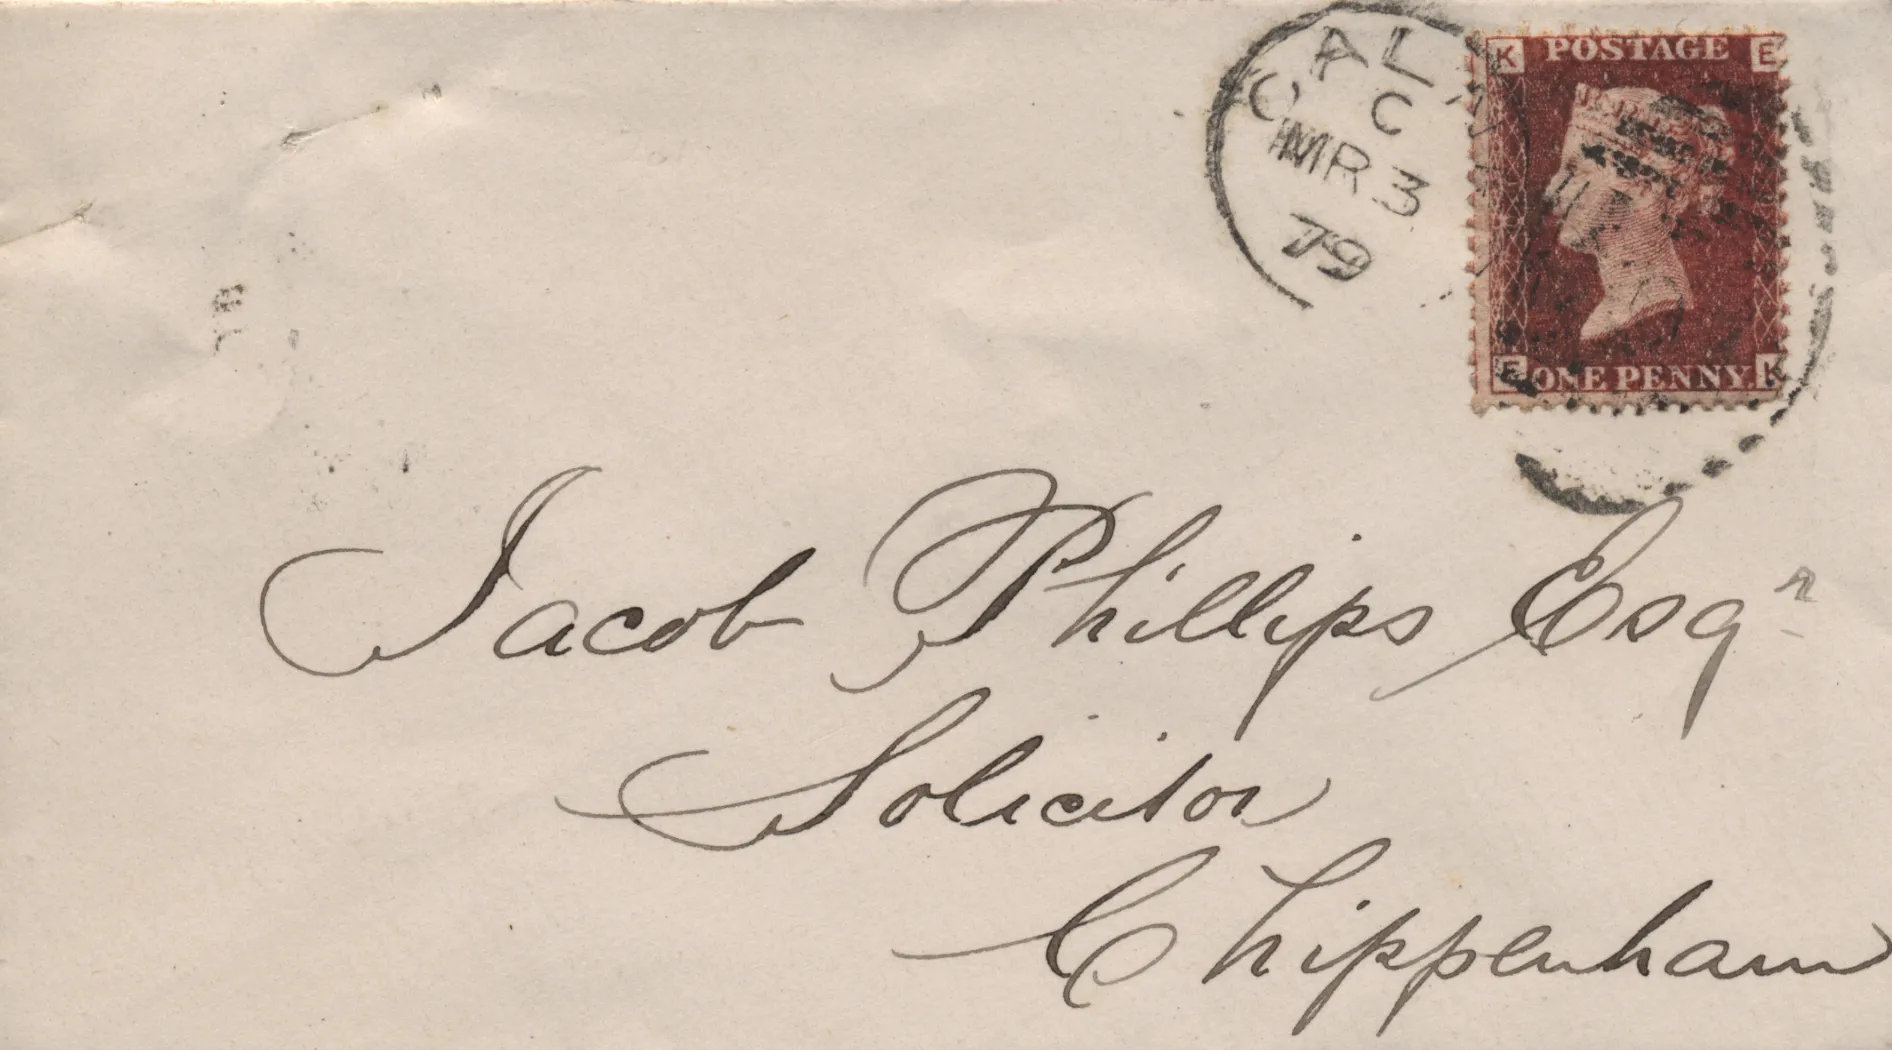 CALN
C
MR 3
79
K POSTAGE E
E ONE PENNY K
Jacob Phillips Esqr
Solicitor
Chippenham